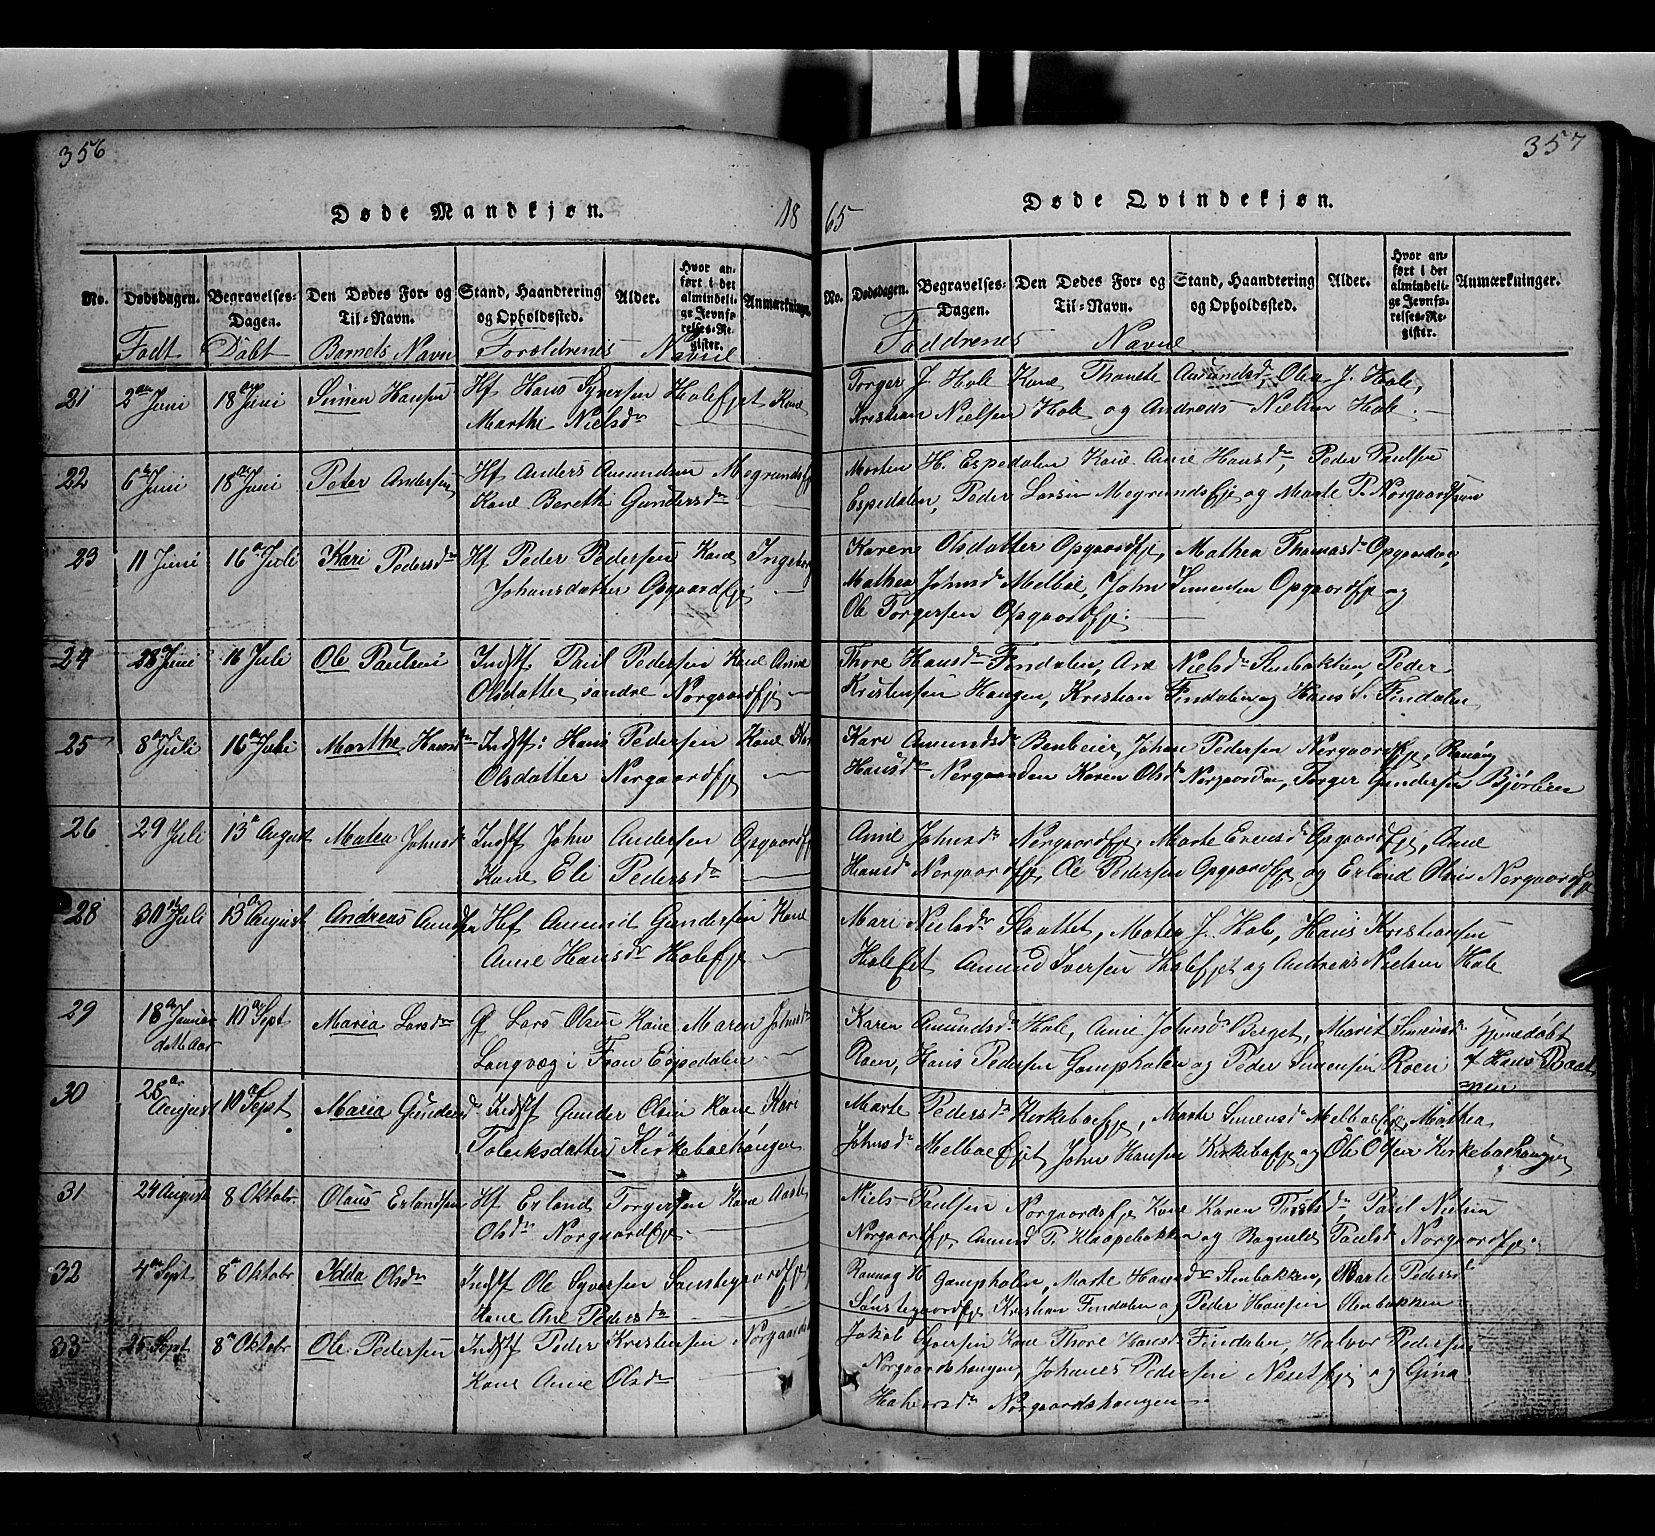 356
Døde Mandkjøn.
18
No.
Dødsdagen.
Begravelses-
Dagen.
Den Dødes For- og
Til-Navn.
Stand, Haandtering
og Opholdssted.
Alder.
Hvor an-
ført i det
almindeli-
ge Jevnfø-
relses-Re-
gister.
Anmærkninger
Født Døbt Barnets Navn Forældrenes Navne
21 2den Juni 18de Juni Simen Hansen Hf Hans Syversen Holefjet Kone
Marthe Nielsdr
22 6te Juni 18de Juni Peter Andersen Hf Anders Amundsen Megrundsfje
Kone Berethe Gundersdr
23 11 Juni 16de Juli Kari Pedersdr Hf Peder Pedersen Kone Ingeborg
Johansdatter Opgaardfje
24 28 Juni 16 Juli Ole Paulsen Indstf Paul Pedersen Kone Anne
Olsdatter søndre Norgaardfje
25 8de Juli 16de Juli Marthe Hansdr Indstf: Hans Pedersen Kone
Olsdatter Norgaardfje
26 29 Juli 13de August Matea Johnsdr Indstf John Andersen Opgaardfj
Kone Eli Pedersdr
28 30te Juli 13de August Andreas Hf Amund Gundersen Kone
Anne Hansdr Holefje
29 18de Januar 10de Sept Maria Larsdr Gf Lars Olsen Kone Maren Johnsdr
dette Aar Langvæg i Fron Espedalen
30 28de August 10de Sept Maria Gundersd Indstf Gunder Olsen Kone Kari
Kirkebøehaugen
31 24 August 8 Oktobr Olaus Erlandsen Hf Erland Torgersen Kone
Olsdr Norgaardfje
32 4de Sept 8de Oktobr Idda Olsdr Indstf Ole Syversen Sønstegaardfje
Kone Ane Pedersdr
33 25 Sept 8de Oktobr Ole Pedersen Indstf Peder Kristensen
Kone Anne Olsdr
357
65
Døde Qvindekjøn.
No.
Dødsdagen.
Begravelses-
Dagen.
Den Dødes For- og
Til-Navn.
Stand, Haandtering
og Opholdssted.
Alder.
Hvor an-
ført i det
almindeli-
ge Jevnfø-
relses-Re-
gister.
Anmærkninger.
Faddrenes Navne
Torger J Hole Kone Thonete Amundsd, Olea J. Hole,
Kristian Nielsen Hole og Andreas Nielsen Hole.
Morten H. Espedalen Kone Anne Hansdr, Peder Paulsen
Espedalen, Peder Larsen Megrundsfje og Marte P. Norgaardfje
Karen Olsdatter Opgaardfje, Mathea Thomasdr Opgaarden,
Mathea Johnsd Melboe, John Simensen Opgaardfje og
Ole Torgersen Opgaardfje.
Thore Hansdr Findalen, Ane Nielsdr Stenbakken, Peder
Kristensen Haugen, Kristian Findalen og Hans S. Findalen
Kari Amundsdr Johan Pedersen Norgaardfje, Rønnøg
Hansdr Norgaarden Karen Olsdr Norgaarden, Torger Gundersen
Anne Johnsdr Norgaardfje, Marte Evensdr Opgaardfje, Anne
Hansd Norgaardfje, Ole Pedersen Opgaardfje og Erland Olsen Norgaardfje
Mari Nielsdr Slaattet, Matea J. Hole, Hans Kristiansen
Holefet Amund Iversen Holefjet og Andreas Nielsen Hole
Karen Amundsdr Hole, Anne Johnsdr Berget, Marit Simensdr Hjemedøbt
Roen, Hans Pedersen Gampholen og Peder Simensen Roen af Hans
Marte Pedersdr Kirkebøefje, Marte Simensdr Melboefje, Mathea
Johnsdr Melboefjet John Hansen Kirkebøfje og Ole Olsen Kirkebøehaugen
Niels Paulsen Norgaardsfje Kone Karen Paul Nielsen
Norgaardfje, Amund P. Klaapebakken og Ragnild Paulsd Norgaardfje.
Rønnog H Gampholen, Marte Hansdr Stenbakken, Marte Pedersdr
Sønstegaardfje Kristian Findalen og Peder Hansen Stenbakken
Jakob Syversen Kone Thore Hansdr Findalen, Halvor Pedersen
Norgaardshaugen, Johanes Pedersen Nesetfje og Gina
Halvorsdr Norgaardshaugen.